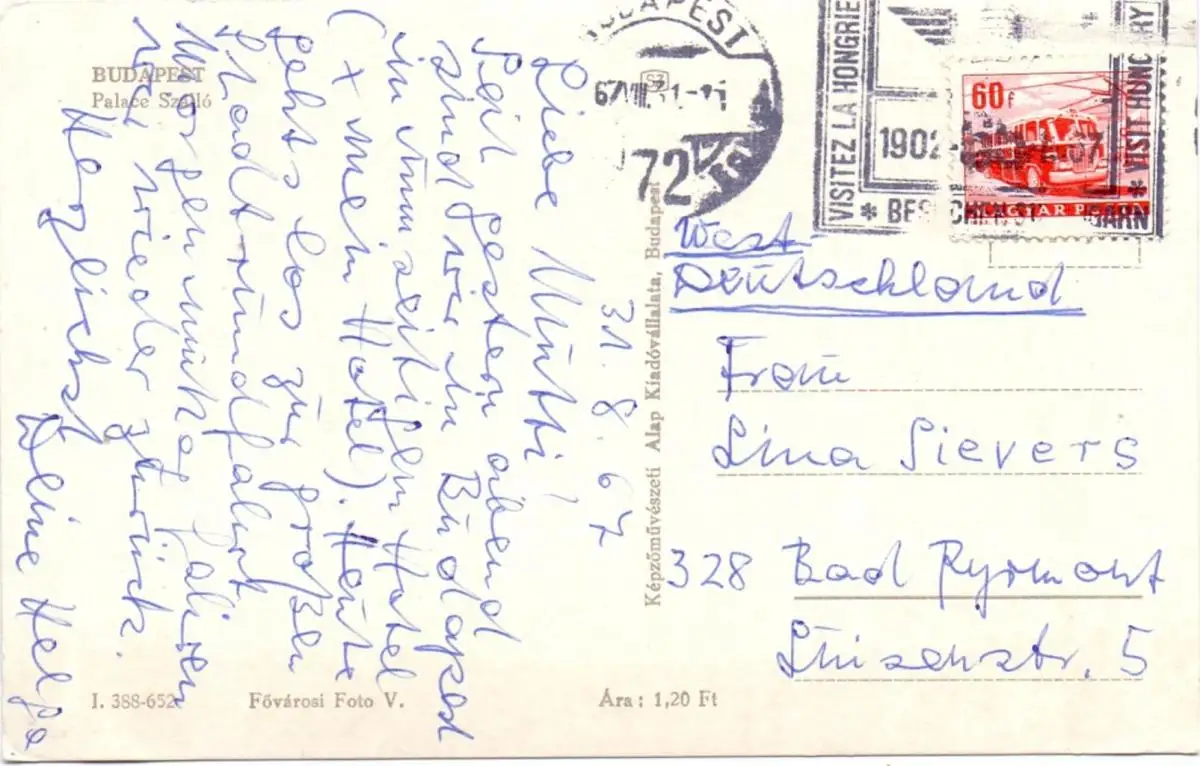 BUDAPEST
Palace Szálló
31. 8. 67
Liebe Mutti,
Seit gestern abend
sind wir in Budapest
in einem zeitigen Hotel
(x mein Hotel). Heute
gehts los zur großen
Stadtrundfahrt
Morgen mittag fahren
wir wieder zurück.
Herzlichst
Deine Helga
Képzőművészeti Alap Kiadóvállalata, Budapest
I. 388-652
Fővárosi Foto V.
Ára: 1,20 Ft
BUDAPEST
72
VISITEZ LA HONGRIE
1902
VISIT HUNGARY
60f
MAGYAR POSTA
West
Deutschland
Frau
Lina Sievers
328 Bad Pyrmont
Luisenstr. 5